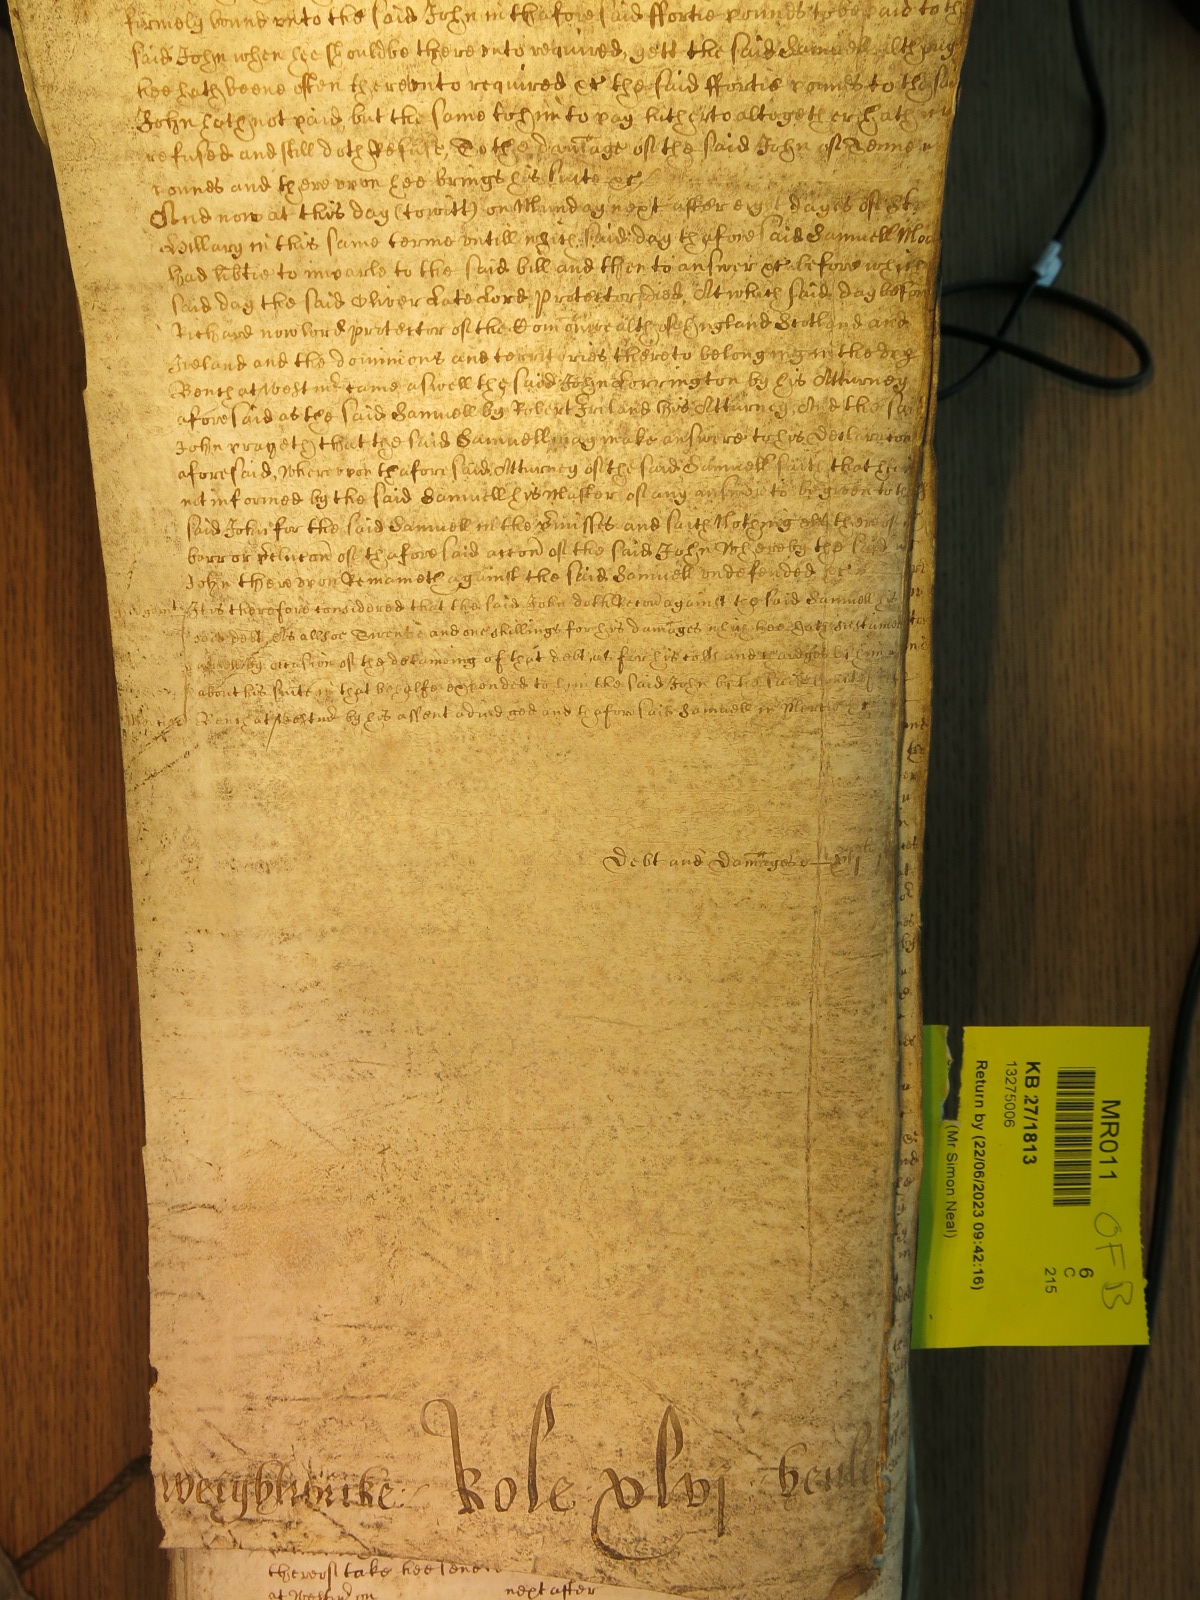 firmely bound unto the said John in thafore said ffortie pounds to be paid to th
said John when hee should be thereunto required, yett the said Samuell although
hee hath beene often thereunto required &c the said ffortie pounds to the said
John hath not paid, but the same to him to pay hitherto altogether hath
refused and still doth refuse, To the damage of the said John of Tenne
pounds and thereupon hee brings his suite &c
And now at this day (to witt) on Munday next after eight dayes of St
Hillary in this same terme untill which said day thafore said Samuell
had lib'tie to imparle to the said bill and then to answer &c before which
said day the said Oliver late Lord Protector died, At which said day before
Richard now Lord Protector of the Com'onwealth of England Scotland and
Ireland and the dominions and territories thereto belonging in the
Bench at Westm' came aswell the said John Lorrington by his Atturney
aforesaid as the said Samuell by Robert Friland his Atturney, And the said
John prayeth that the said Samuell may make answere to his Declarac'on
aforesaid, Whereupon thaforesaid Atturney of the said Samuell saith that hee
not informed by the said Samuell his Master of any answer to be given to the
said John for the said Samuell in the p'misses and saith Nothing els thereof
barr or p'clucon of thaforesaid accon of the said John Whereby the said
John thereupon Remaineth against the said Samuell undefended &c
It is therefore considered that the said John doth Recov' against the said Samuell his
debt, As allsoe Twentie and one shillings for his damages which hee hath sustained
occasion of the detaineing of that debt as for his costs and chardges by him
about his suite in that behalfe expended to him the said John by the
Bench at Westm' by his assent adiudged And thaforesaid Samuell in Mercie &c
Debt and Damages xli
Role xlvi
thereof take hee
at Westm' on next after
MR011
OFB
KB 27/1813
13275006
6
C
215
Return by (22/06/2023 09:42:16)
(Mr Simon Neal)